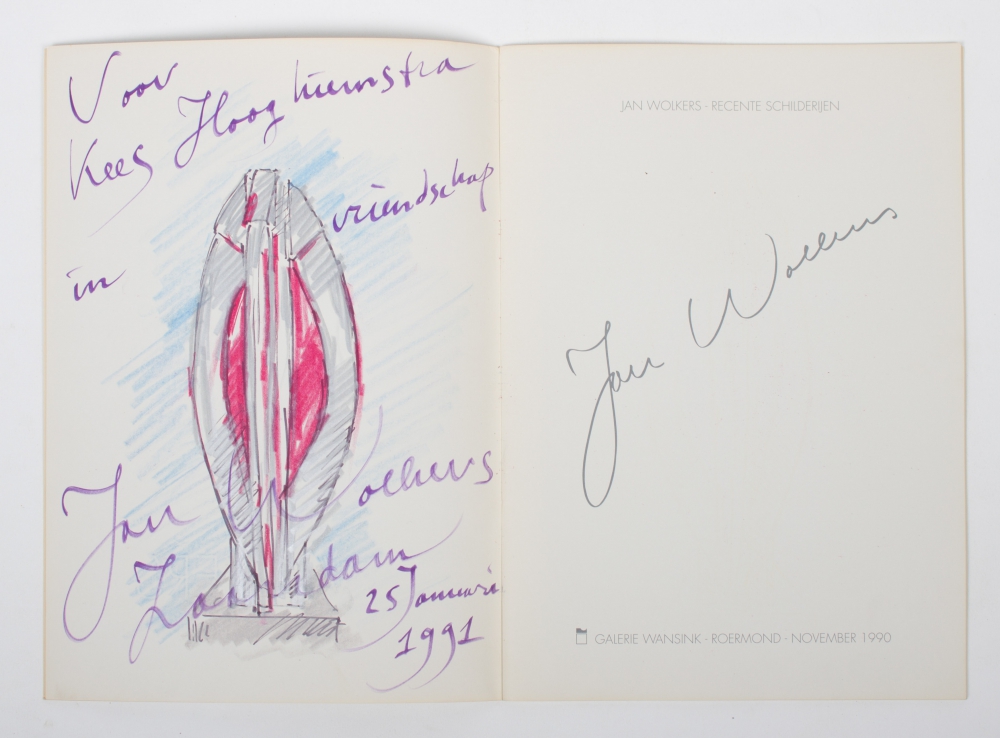 Voor
Kees Hooghiemstra
in vriendschap
Jan Wolkers
Zaandam
25 Januari
1991
JAN WOLKERS · RECENTE SCHILDERIJEN
Jan Wolkers
GALERIE WANSINK · ROERMOND · NOVEMBER 1990